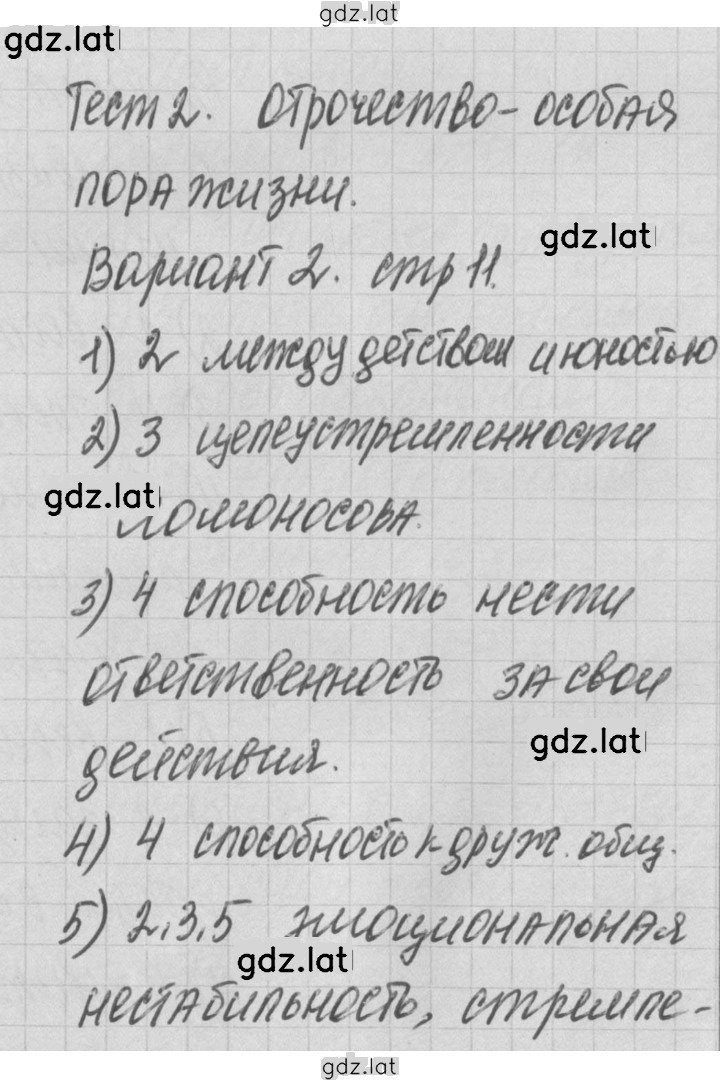 gdz.lat
gdz.lat
Тест 2. Отрочество - особая
пора жизни.
gdz.lat
Вариант 2. стр 11.
1) 2 между детством и юностью
2) 3 целеустремленности
gdz.lat
Ломоносова.
3) 4 способность нести
ответственность за свои
gdz.lat
действия.
4) 4 способность к друж. общ.
5) 2,3,5 эмоциональная
gdz.lat
нестабильность, стремле-
gdz.lat